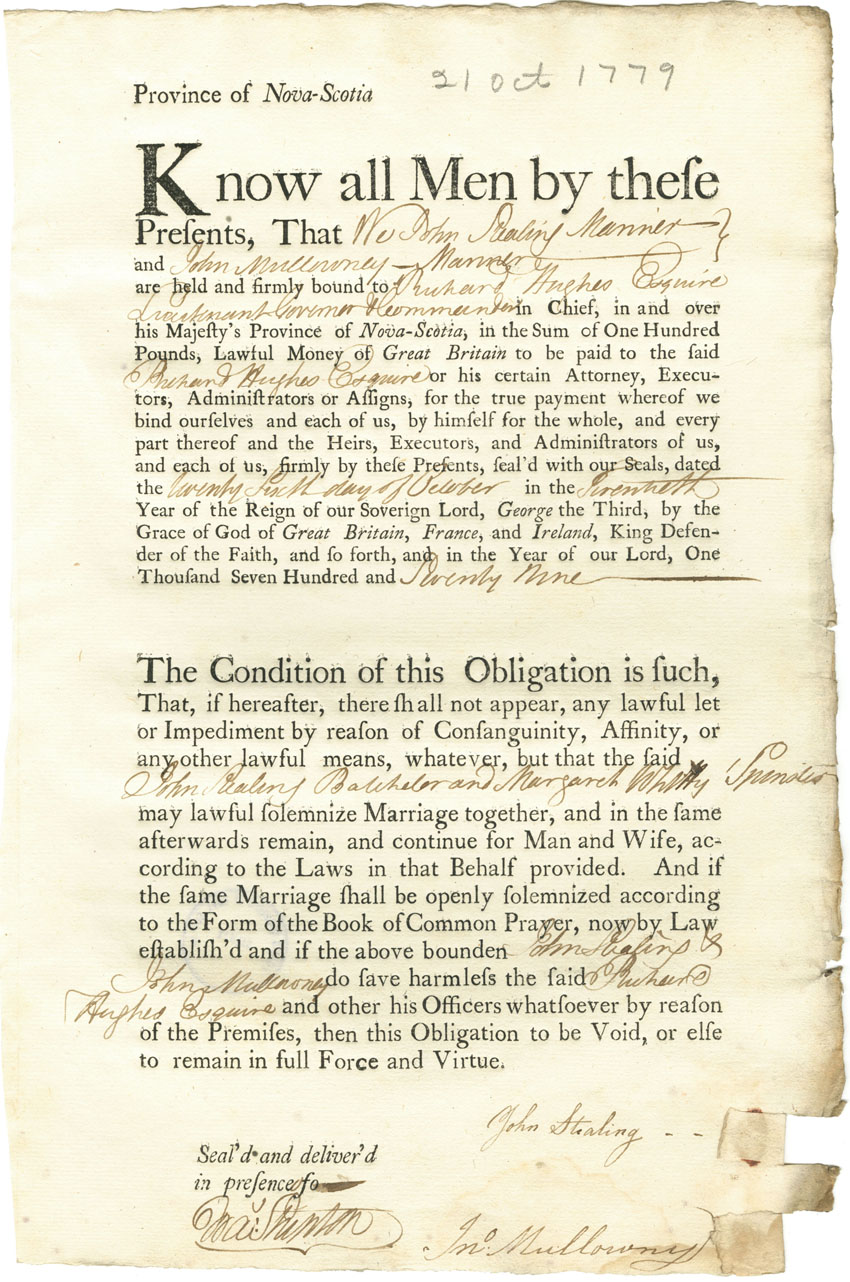 21 Oct 1779
Province of Nova-Scotia
Know all Men by theſe
Preſents, That We John Stealing Mariner
and John Mullowney — Mariner
are held and firmly bound to Richard Hughes Esquire
Lieutenant Governor & Commander in Chief, in and over
his Majeſty's Province of Nova-Scotia, in the Sum of One Hundred
Pounds, Lawful Money of Great Britain to be paid to the ſaid
Richard Hughes Esquire or his certain Attorney, Execu-
tors, Adminiſtrators or Aſſigns, for the true payment whereof we
bind ourſelves and each of us, by himſelf for the whole, and every
part thereof and the Heirs, Executors, and Adminiſtrators of us,
and each of us, firmly by theſe Preſents, ſeal'd with our Seals, dated
the twenty day of October in the Twentieth
Year of the Reign of our Soverign Lord, George the Third, by the
Grace of God of Great Britain, France, and Ireland, King Defen-
der of the Faith, and ſo forth, and in the Year of our Lord, One
Thouſand Seven Hundred and Seventy Nine
The Condition of this Obligation is ſuch,
That, if hereafter, there ſhall not appear, any lawful let
or Impediment by reaſon of Conſanguinity, Affinity, or
any other lawful means, whatever, but that the ſaid
John Stealing Batchelor and Margaret Whitty Spinster
may lawful ſolemnize Marriage together, and in the ſame
afterwards remain, and continue for Man and Wife, ac-
cording to the Laws in that Behalf provided. And if
the ſame Marriage ſhall be openly ſolemnized according
to the Form of the Book of Common Prayer, now by Law
eſtabliſh'd and if the above bounden John Stealing &
John Mullowney do ſave harmleſs the ſaid Richard
Hughes Esquire and other his Officers whatſoever by reaſon
of the Premiſes, then this Obligation to be Void, or elſe
to remain in full Force and Virtue.
John Stealing - -
Seal'd and deliver'd
in preſence fo
Jno. Mullowney